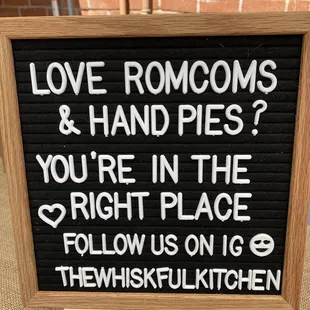 LOVE ROMCOMS
& HAND PIES?
YOU'RE IN THE
RIGHT PLACE
FOLLOW US ON IG
THEWHISKFULKITCHEN